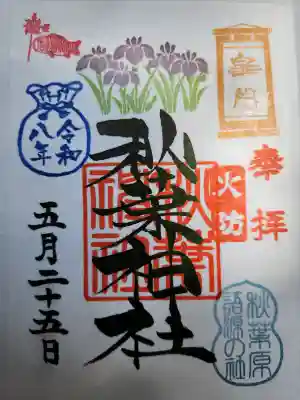 奉拝
火防
秋葉神社
令和
八年
五月二十五日
秋葉原
語源の社